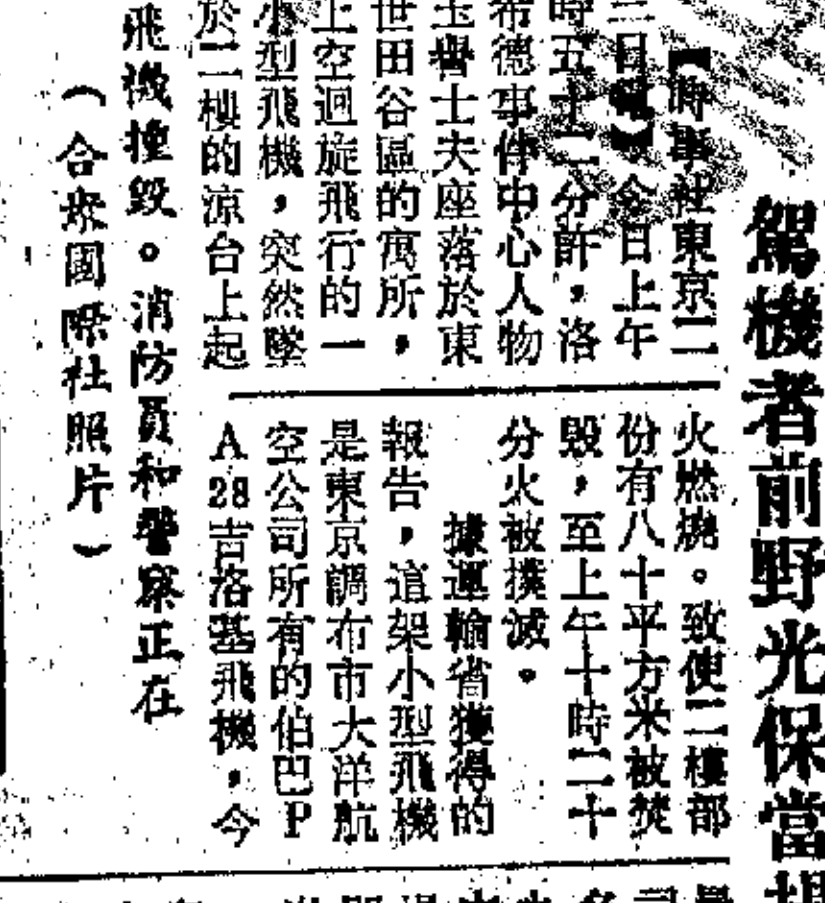 駕機者前野光保當場
【時事社東京二
三日電】今日上午
時五十二分許，洛
希德事件中心人物
玉譽士夫座落於東
世田谷區的寓所，
上空迴旋飛行的一
小型飛機，突然墜
於二樓的涼台上起
火燃燒。致使二樓部
份有八十平方米被焚
毀，至上午十時二十
分火被撲滅。
據運輸省獲得的
報告，這架小型飛機
是東京調布市大洋航
空公司所有的伯巴P
A28吉洛基飛機，今
飛機撞毀。消防員和警察正在
（合衆國際社照片）